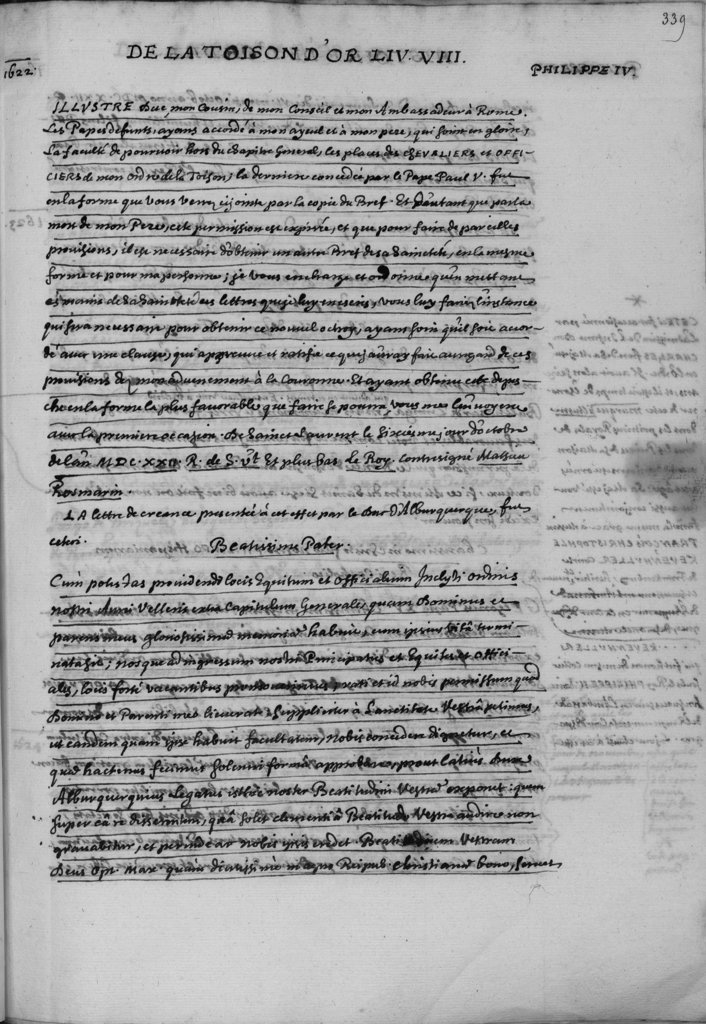 339
DE LA TOISON D'OR LIV. VIII.
1622.
PHILIPPE IV.
ILLVSTRE Duc mon Cousin, de mon Conseil et mon Ambassadeur à Rome.
Les Papes défunts, ayans accordé à mon ayeul et à mon pere, qui soint en gloire,
La faculté de pourvoir hors du chapitre General, les places des CHEVALIERS et OFFI-
CIERS de mon ordre de la Toison; la derniere concedée par le Pape Paul V. fut
en la forme que vous verrez cy jointe par la copie du Bref. Et d'autant que par la
mort de mon Pere, cete permission est expirée, et que pour faire de pareilles
provisions, il est necessaire d'obtenir un autre Bref de sa Sainteté, en la mesme
forme et pour ma personne; je vous encharge et ordonne qu'en mettant
es mains de sa Sainteté les lettres que je luy escris, vous luy faciez l'instance
qui sera necessaire pour obtenir ce nouvel octroy, ayant soin qu'il soit accor-
dé avec une clause, qui appreuve et ratifie ce que j'auray fait au regard de ces
provisions depuis mon advenement à la Couronne. Et ayant obtenu cete depes-
che en la forme la plus favorable que faire se pourra, vous me l'envoyerez
avec la premiere occasion. De Sainct Laurent le sixiesme jour d'octobre
de l'an MDC.XXII. R. de S. Vt. Et plus bas Le Roy. Contresigné Matheu
Rosmarin.
LA lettre de creance presentée à cet effet par le Duc d'Alburquerque, fut
cete cy.
Beatissime Pater.
Cum potestas providendi locis Equitum et Officialium Inclyti ordinis
nostri Aurei Velleris extra Capitulum Generale, quam Dominus et
parens meus gloriosissimae memoriae habuit, cum ipsius vita termi-
nata sit; nosque ad ingressum nostri Principatus et Equites et offici-
ales, locis forte vacantibus
Domino et Parenti meo licuerat suppliciter à Sanctitate Vestra petimus,
ut eandem quam ipse habuit facultatem, nobis concedere dignetur, et
quod hactenus fecimus solemni forma approbare, prout latius Dux
Alburquerquius Legatus istic noster Beatitudini Vestrae exponet: quem
super eâ re disserentem, quâ solet clementiâ Beatitudo Vestra audire non
gravabitur, et perinde ac nobis ipsis credet Beatitudinem Vestram
Deus Opt. Max. quam diutissime magno Reipub. Christianae bono, servet